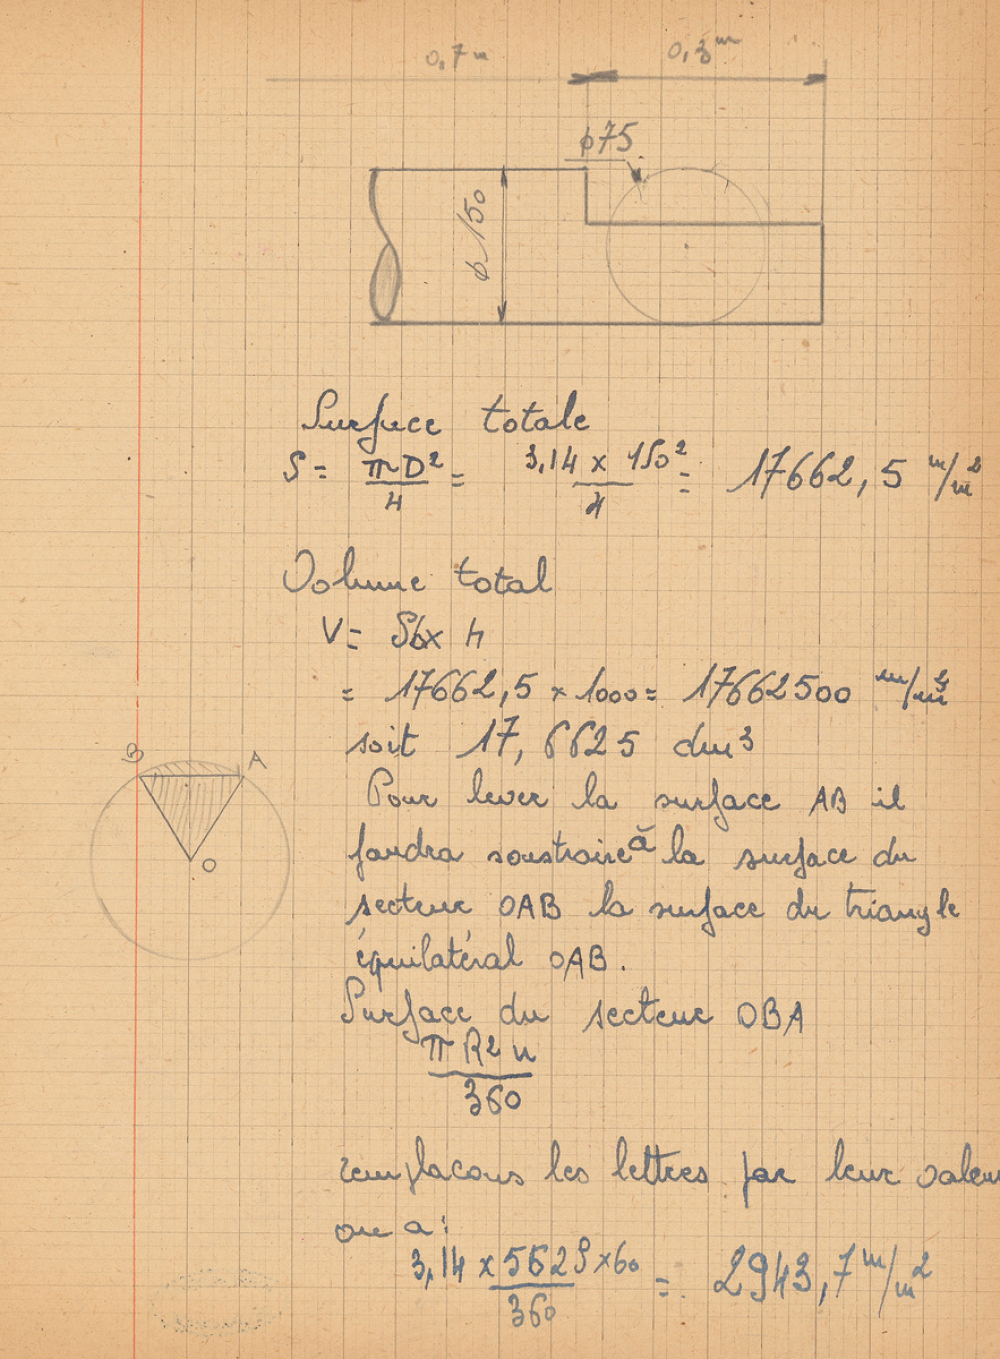 0,7 m 0,3 m
φ75
φ 150
Surface totale
S = πD²/4 = 3,14 x 150²/4 = 17662,5 m/m²
Volume total
V = Sb x h
= 17662,5 x 1000 = 17662500 m/m³
soit 17,6625 dm³
B A
O
Pour lever la surface AB il
faudra soustraire à la surface du
secteur OAB la surface du triangle
équilatéral OAB.
Surface du secteur OBA
πR²n
360
remplacons les lettres par leur valeur
on a :
3,14 x 5625 x 60 / 360 = 2943,7 m/m²